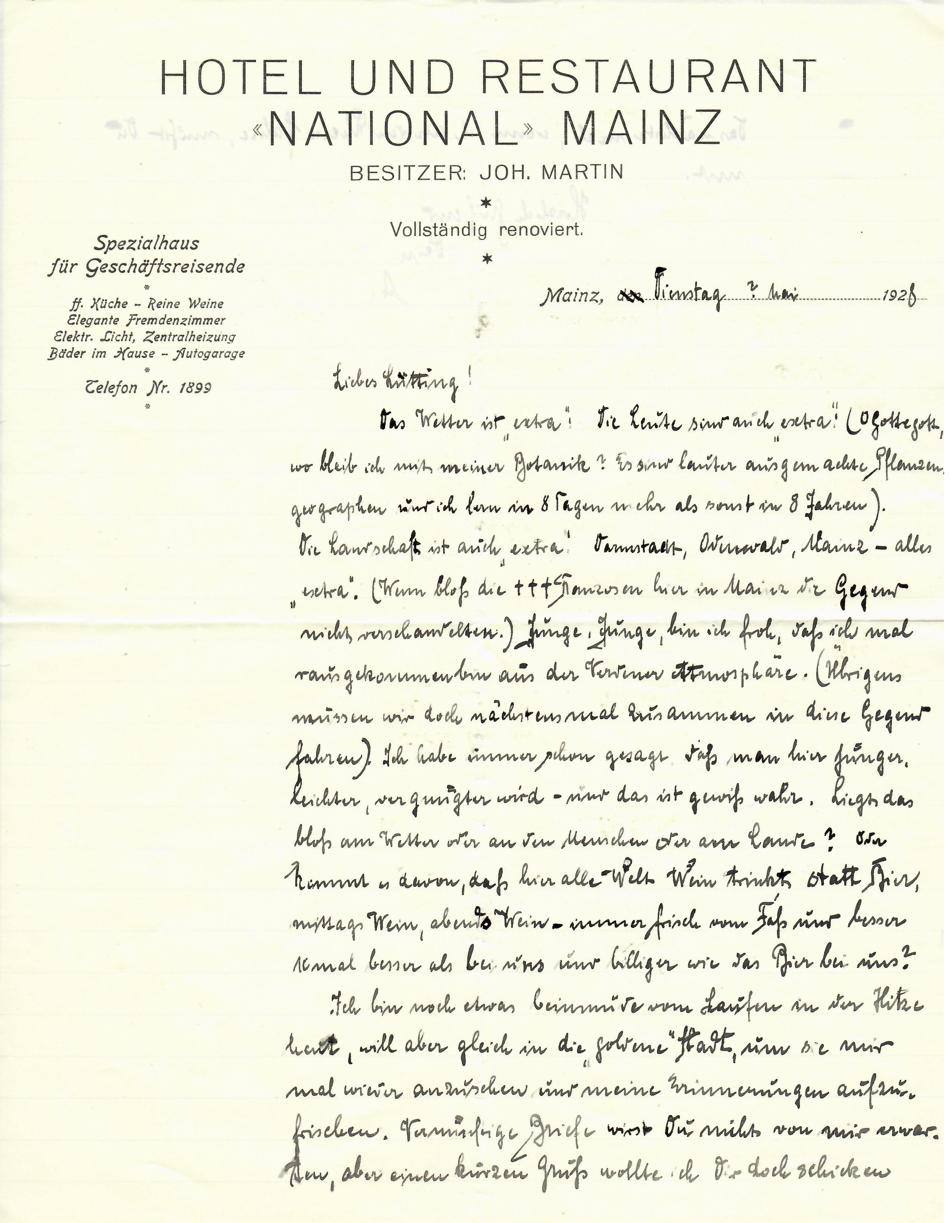 HOTEL UND RESTAURANT
«NATIONAL» MAINZ
BESITZER: JOH. MARTIN
*
Vollständig renoviert.
*
Spezialhaus
für Geschäftsreisende
*
ff. Küche – Reine Weine
Elegante Fremdenzimmer
Elektr. Licht, Zentralheizung
Bäder im Hause – Autogarage
*
Telefon Nr. 1899
*
Mainz, den Dienstag ? Mai 1928
Liebes Lütting!
Das Wetter ist „extra“! Die Leute sind auch „extra“! (O Gottegott,
wo bleib ich mit meiner Botanik? Es sind lauter ausgemachte Pflanzen-
geographen und ich lern in 8 Tagen mehr als sonst in 8 Jahren).
Die Landschaft ist auch „extra“! Darmstadt, Odenwald, Mainz – alles
„extra“. (Wenn bloß die +++ Franzosen hier in Mainz die Gegend
nicht verschandelten.) Junge, Junge, bin ich froh, daß ich mal
rausgekommen bin aus der Verdener Atmosphäre. (Übrigens
müssen wir doch nächstens mal zusammen in diese Gegend
fahren). Ich habe immer schon gesagt daß man hier jünger,
leichter, vergnügter wird – und das ist gewiß wahr. Liegts das
bloß am Wetter oder an den Menschen oder am Lande? Oder
kommt es davon, daß hier alle Welt Wein trinkt statt Bier,
mittags Wein, abends Wein – immer frisch vom Faß und besser
10mal besser als bei uns und billiger wie das Bier bei uns?
Ich bin noch etwas beinmüde vom Laufen in der Hitze
heut, will aber gleich in die „goldene“ Stadt, um sie mir
mal wieder anzusehen und meine Erinnerungen aufzu-
frischen. Vernünftige Briefe wirst Du nicht von mir erwar-
ten, aber einen kurzen Gruß wollte ich Dir doch schicken